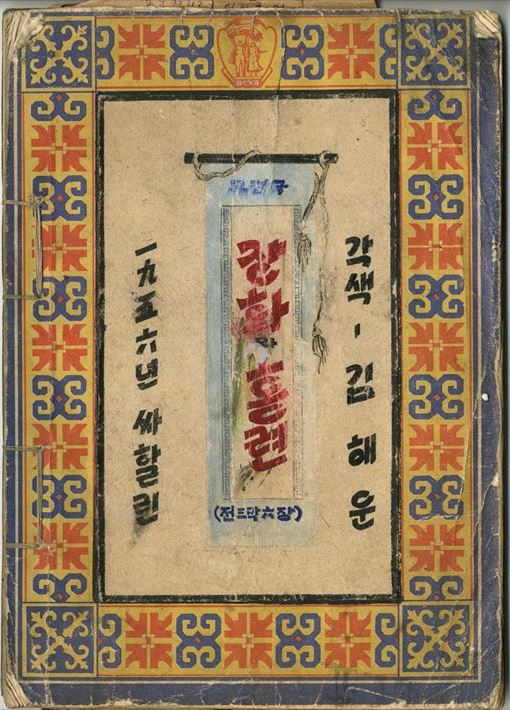 ВСХВ
각색 - 김해운
장화 홍련
(전三막六장)
一九五六년 싸할린